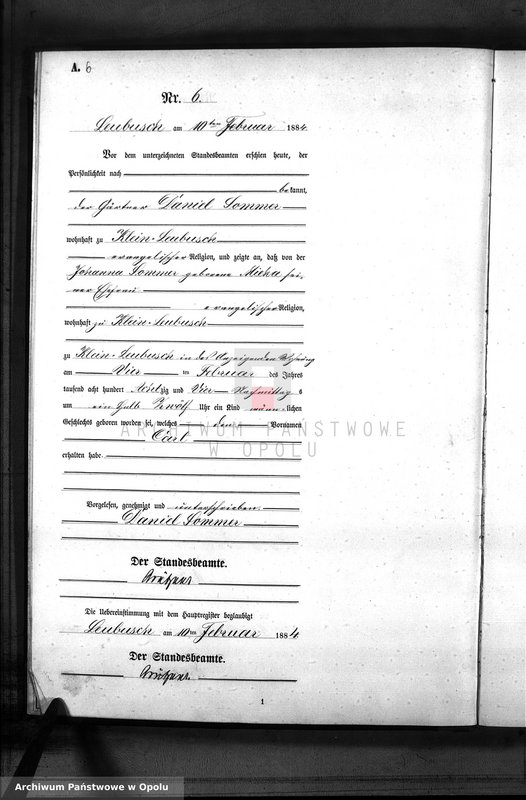 A. 6
Nr. 6.
Leubusch am 10ten Februar 1884
Vor dem unterzeichneten Standesbeamten erschien heute, der
Persönlichkeit nach
bekannt,
der Gärtner Daniel Sommer
wohnhaft zu Klein-Leubusch
evangelischer Religion, und zeigte an, daß von der
Johanna Sommer geborene Micha sei-
ner Ehefrau
evangelischer Religion,
wohnhaft zu Klein-Leubusch
zu Klein-Leubusch in des Anzeigenden Wohnung
am Vier ten Februar des Jahres
tausend acht hundert Achtzig und Vier Nachmittag s
um ein halb Zwölf Uhr ein Kind männlichen
Geschlechts geboren worden sei, welches den Vornamen
Carl
erhalten habe.
Vorgelesen, genehmigt und unterschrieben.
Daniel Sommer
Der Standesbeamte.
Die Uebereinstimmung mit dem Hauptregister beglaubigt
Leubusch am 10ten Februar 1884
Der Standesbeamte.
1
ARCHIWUM PAŃSTWOWE
W OPOLU
Archiwum Państwowe w Opolu